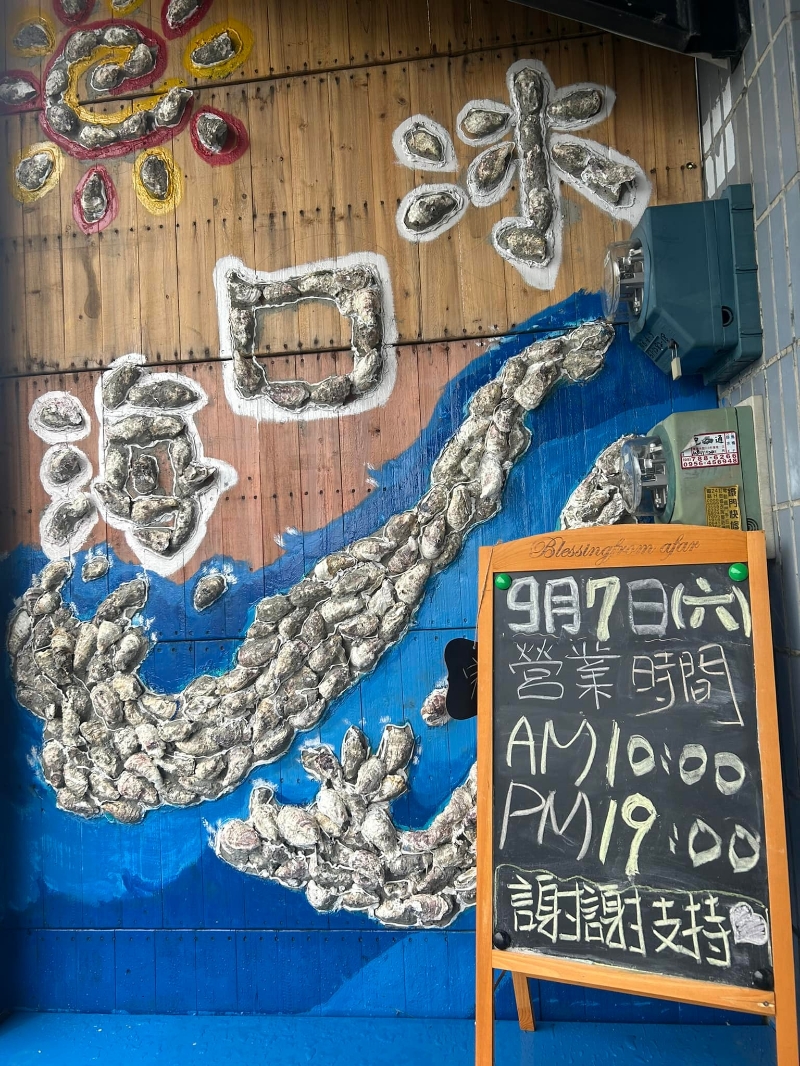 海口冰
Blessing from afar
9月7日(六)
營業時間
AM10:00
PM19:00
謝謝支持